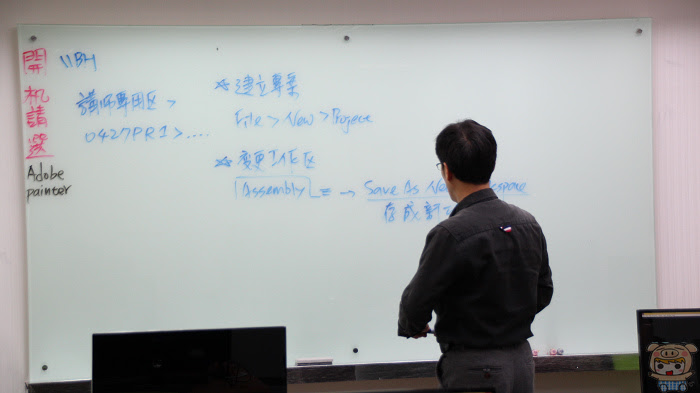 開
机
請
選
Adobe
painter
講師專用区 >
0427PR1>....
☆建立專案
File > New > Project
☆變更工作区
Assembly ≡ → Save As New
存成新